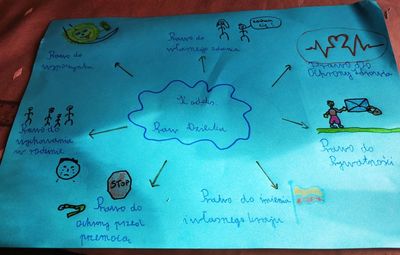 Prawo do
wypoczynku
Prawo do
własnego zdania
Prawo do
Ochrony zdrowia
Prawo do
wychowania
w rodzinie
Kodeks
Praw Dziecka
Prawo do
Prywatności
STOP
Prawo do
ochrony przed
przemocą
Prawo do imienia
i własnego kraju